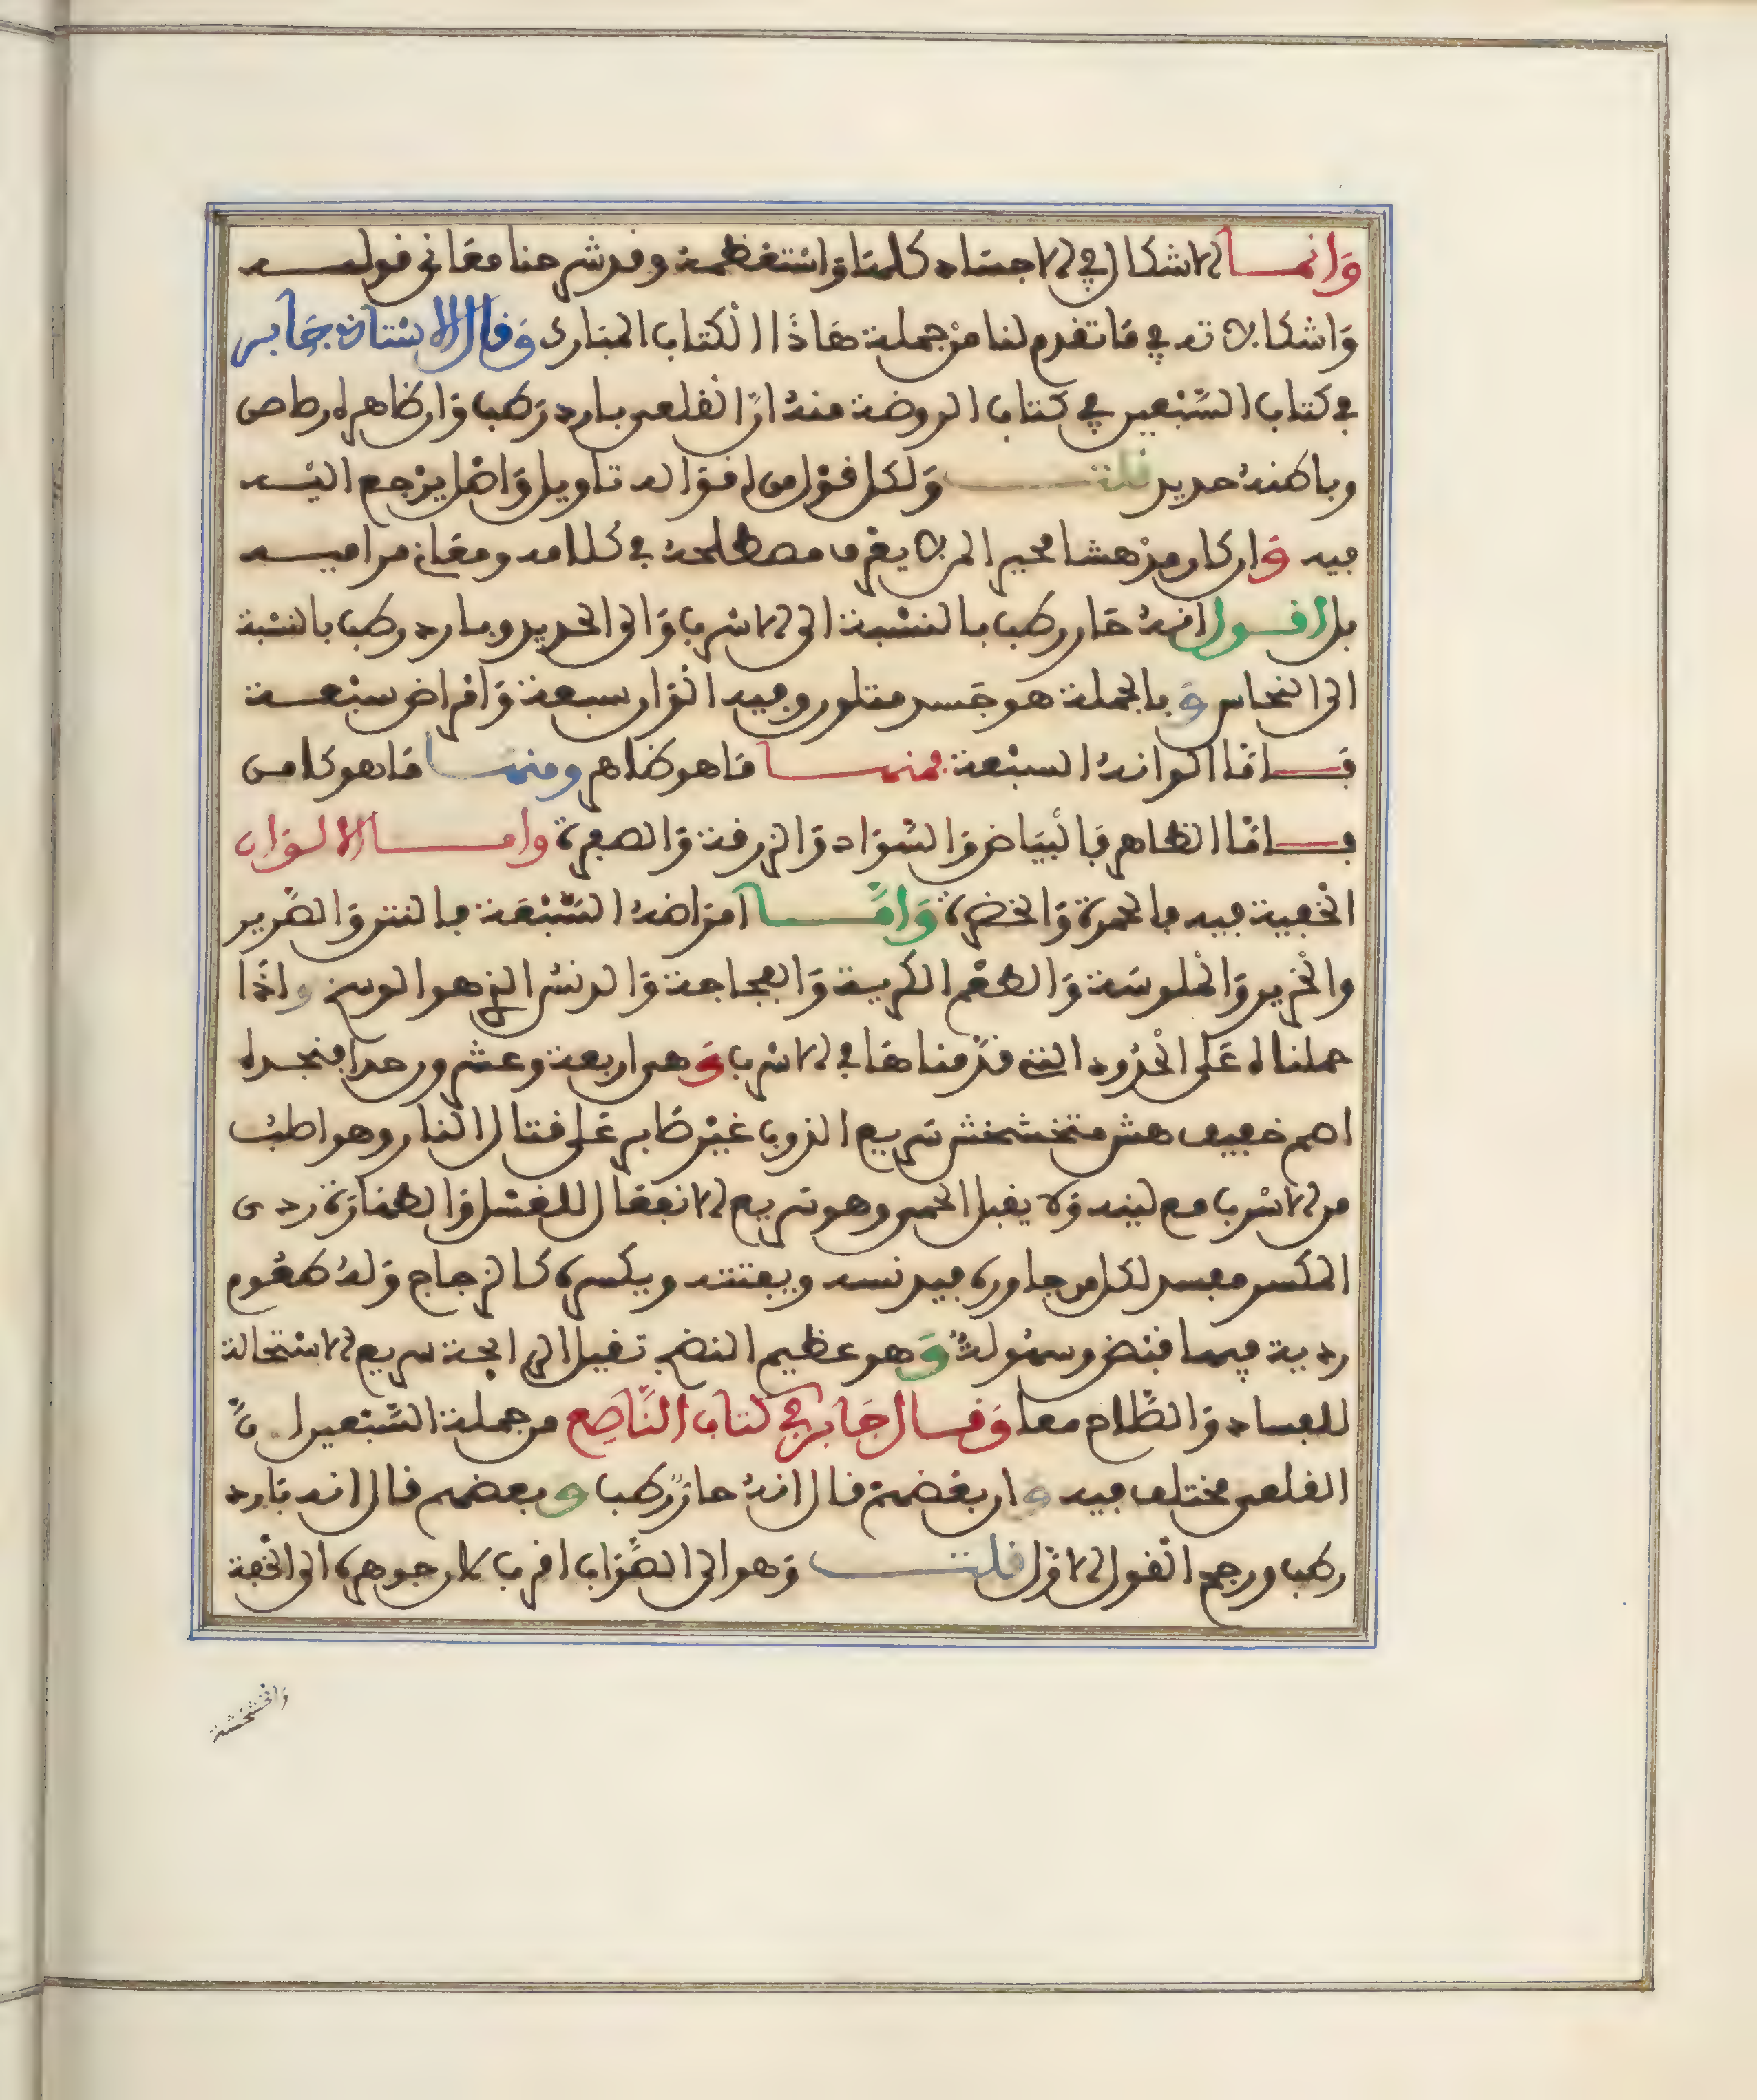 وَانمـا الاشكال في الاجساد كلهَا وَاسْتعْظمه وقد شرحنا معَاني قولـه
وَاشكالاته في مَا تقدم لنا من جملة هَاذَا الْكتاب المبَارك وَقال الاسْتاذ جَابر
في كتاب السَّبْعين في كتاب الروضة منهُ انَّ القلعي بارد رَطب وَان ظاهره رصاص
وباطنهُ حديد قلتـ وَلكل قوْل من اقوَاله تاويل وَاصْل يرْجع اليْـه
فيه وَان كان مِنْ هشا محير المن لا يعْرف مصطلحهُ في كلامه ومعَاني مراميـه
بل اقـول انهُ حَار رطب بالنسْبة الى الاسْرب وَالى الحديد وبارد رطب بالنسْبة
الى النحاس وَبالجملة هو جَسد متلون وفيه الْوَان سبعة وَامْرَاض سبْعـة
فـامَّا الوانهُ السبْعة فمنهـا مَا هو ظاهر ومنهـا مَا هو كامن
فـامَّا الظاهر فَالْبيَاض وَالسَّوَاد وَالزرقة وَالصفرة وامـا الالـوَان
الْخفية فيه فالحمرة وَالخضرة وَامَّـا امرَاضهُ السَّبْعَة فالنتن وَالصَّرير
والْخرير وَالْملوسَة وَالطعْم الكريه وَالفجاجة وَالدنسُ الذي هو الوسخ واذَا
حملناه عَلى الْحُدُود التي قدَّمناهَا في الاسْرب وَهي اربعة وعشرون حدا فنجـده
اصم خفيف هش متخشخش سَريع الذوب غيْر صَابر عَلى قتال النار وهو اصْلبُ
من الاسْرب مع لينه وَلا يقبل الحمى وهو سَريع الانفعَال للغسْل وَالطهَارَة ردى
المكسر مفسد لكل من جاوره فيدنسه ويفتته ويكسره كالزجاج وَلهُ طعُوم
ردية فيهـا قبْض وسهُولةٌ وَهو عظيم النضج ثقيل الرايحة سريع الاسْتحالة
للفساد وَالصَّلاح معا وَقـال جَابر في كتاب النَّاصع من جملة السَّبْعين انَّ
القلعي مختلف فيه وان بعْضهمْ قال انهُ حارٌّ رطب وبعضهم قال انه بَارد
رطب ورجح الْقول الاوّل قلتـ وَهو الى الصَّوَاب اقرب لان جوهره الى الْخفة
وَالخشخشة